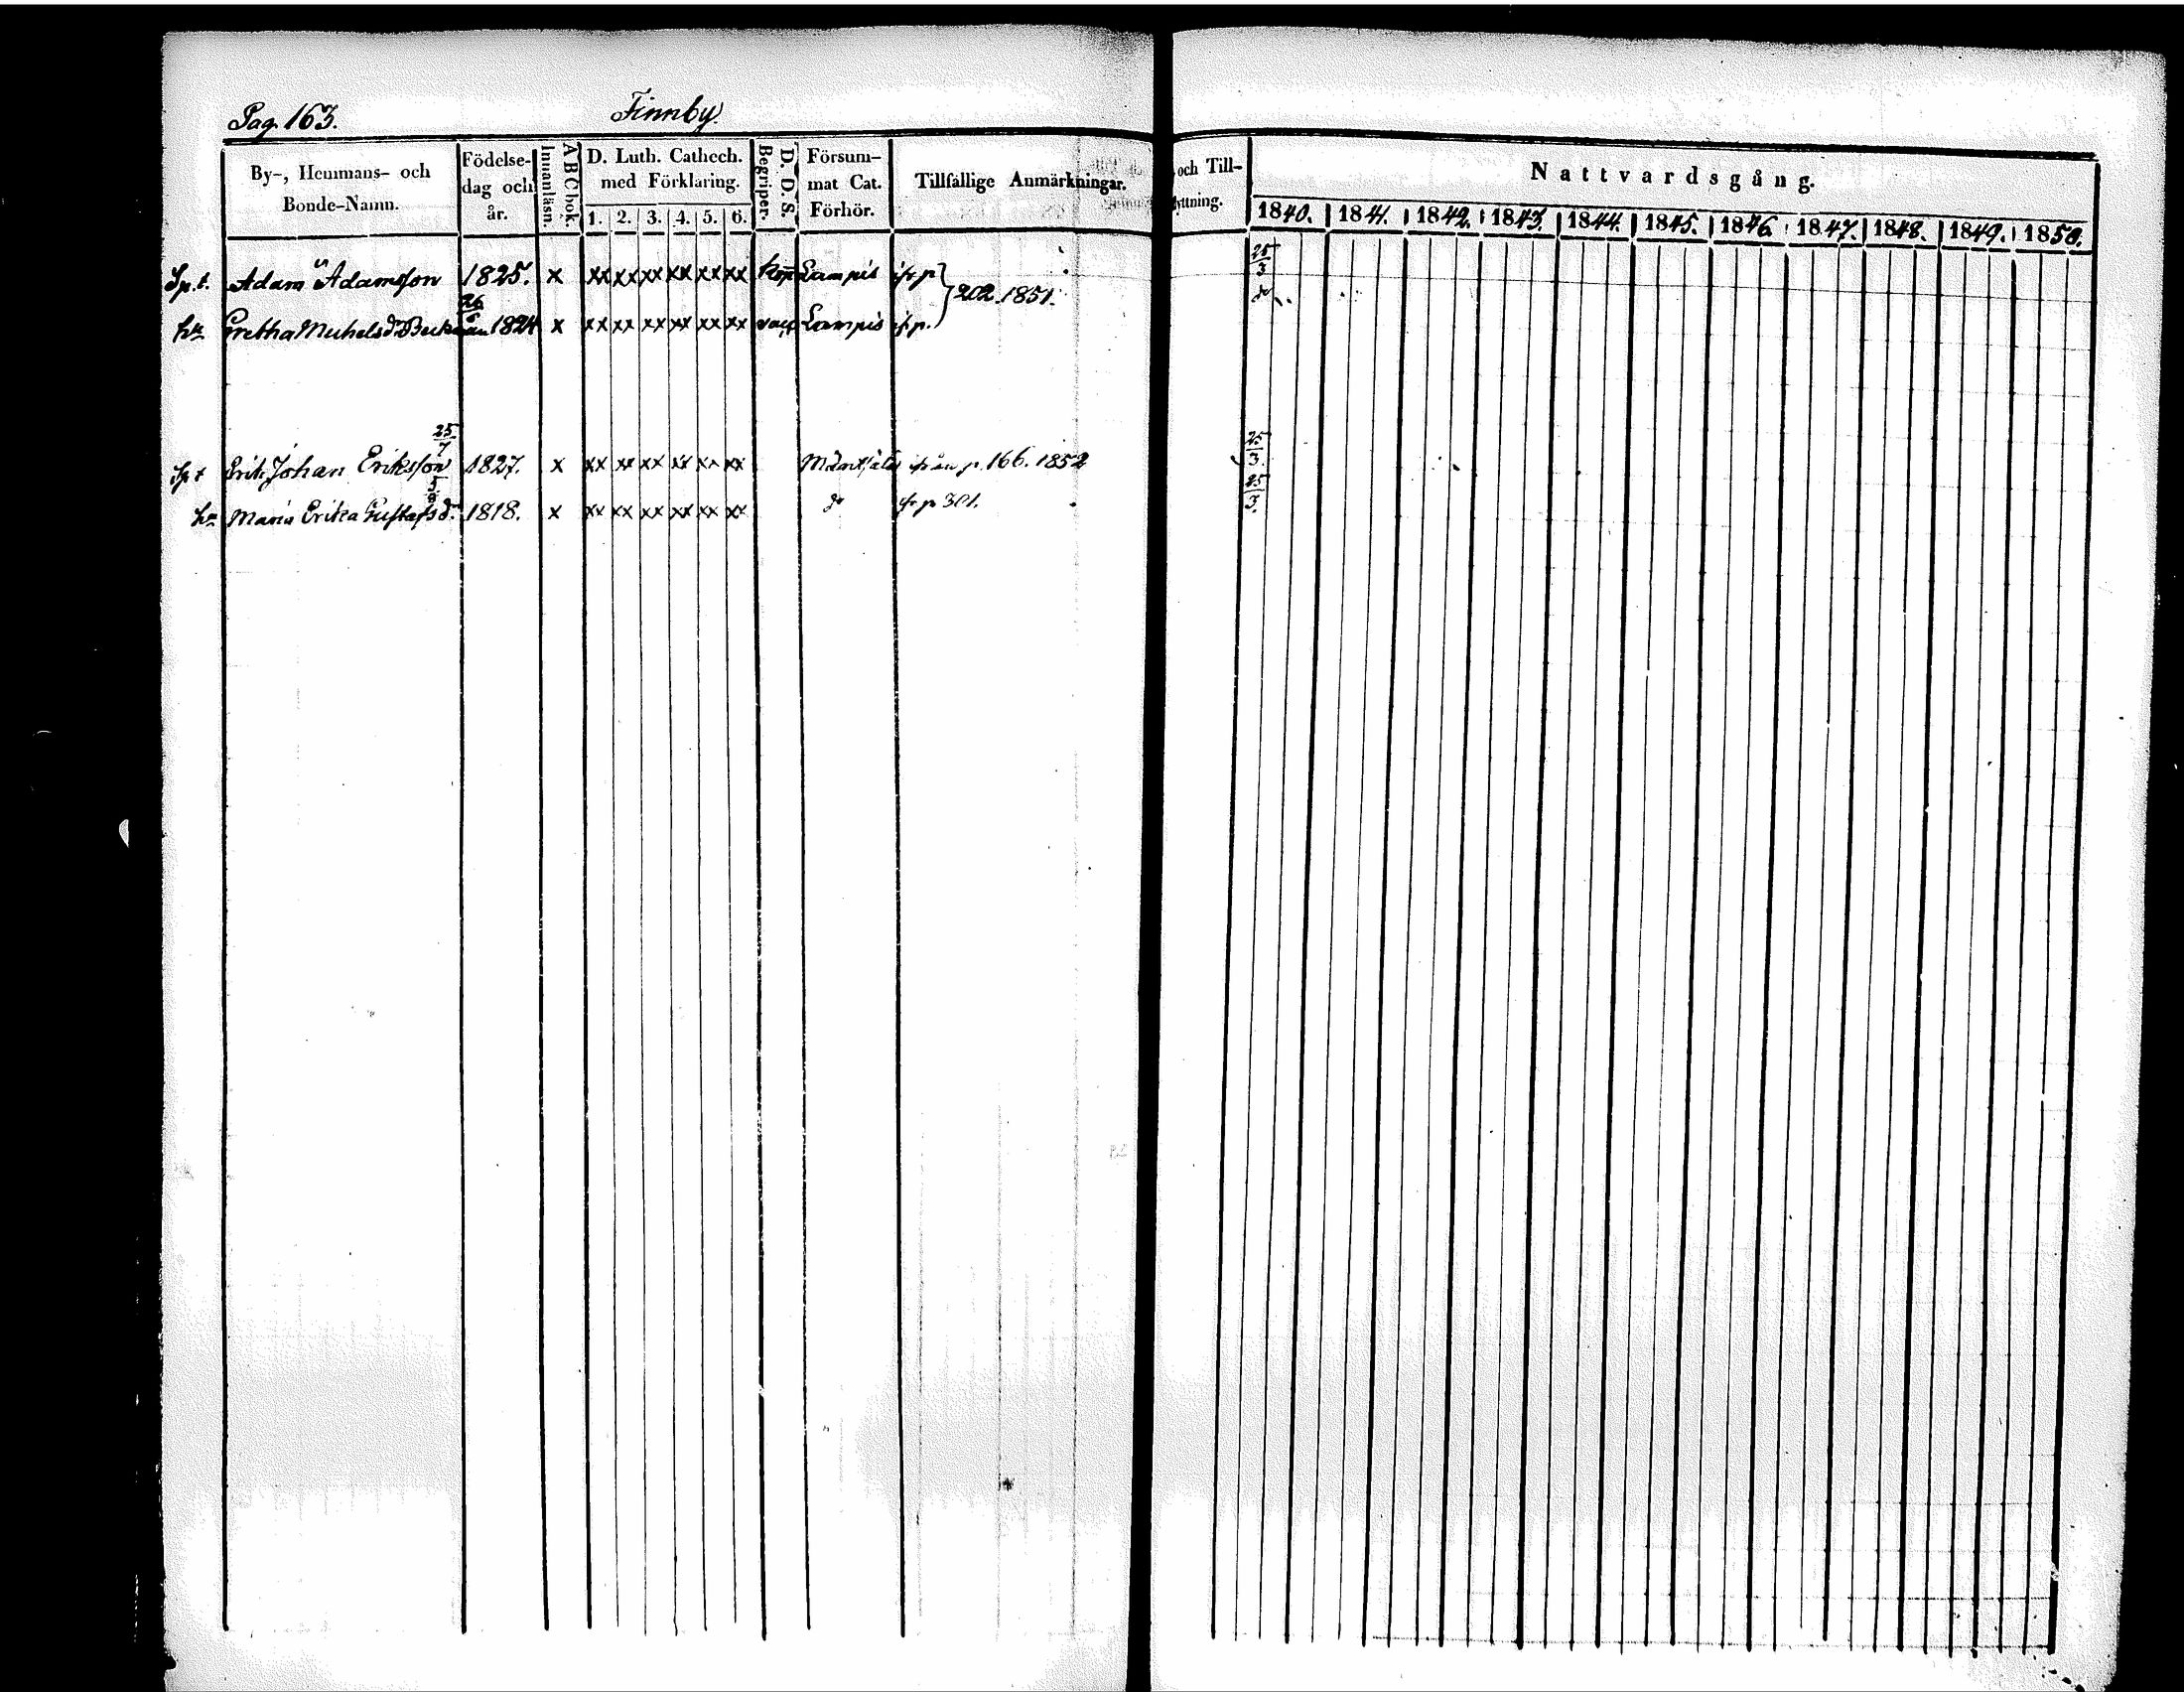 Pag. 163. Finnby.
By-, Hemmans- och Bonde-Namn. Födelse-dag och år. Innanläsn. ABCbok. D. Luth. Cathech. med Förklaring. 1. 2. 3. 4. 5. 6. Begriper. D. D. S. Försum-mat Cat. Förhör. Tillfällige Anmärkningar. och Till- yttning. Nattvardsgång.
1840. 1841. 1842. 1843. 1844. 1845. 1846. 1847. 1848. 1849. 1850.
Sp.t. Adam Adamsson 1825. x xx xx xx xx xx xx Lampis ifr. p 202. 1851. 25/3
hu Gretha Michelsdr Beckman 26/6 1824 x xx xx xx xx xx xx vacc Lampis fr. p. do
Sp.t Erik Johan Eriksson 25/7 1827. x xx xx xx xx xx xx p. 166. 1852 25/3.
hu Maria Erika Gustafsdr. 1818. x xx xx xx xx xx xx do fr. p. 301. 25/3.